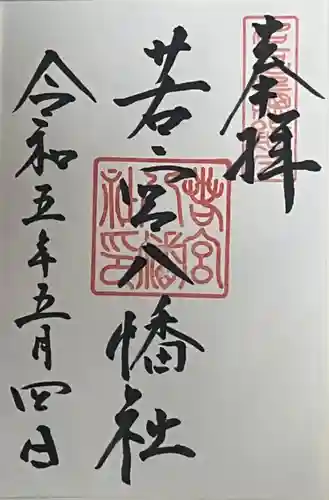 奉拝
若宮八幡社
令和五年五月四日
若宮八幡社印